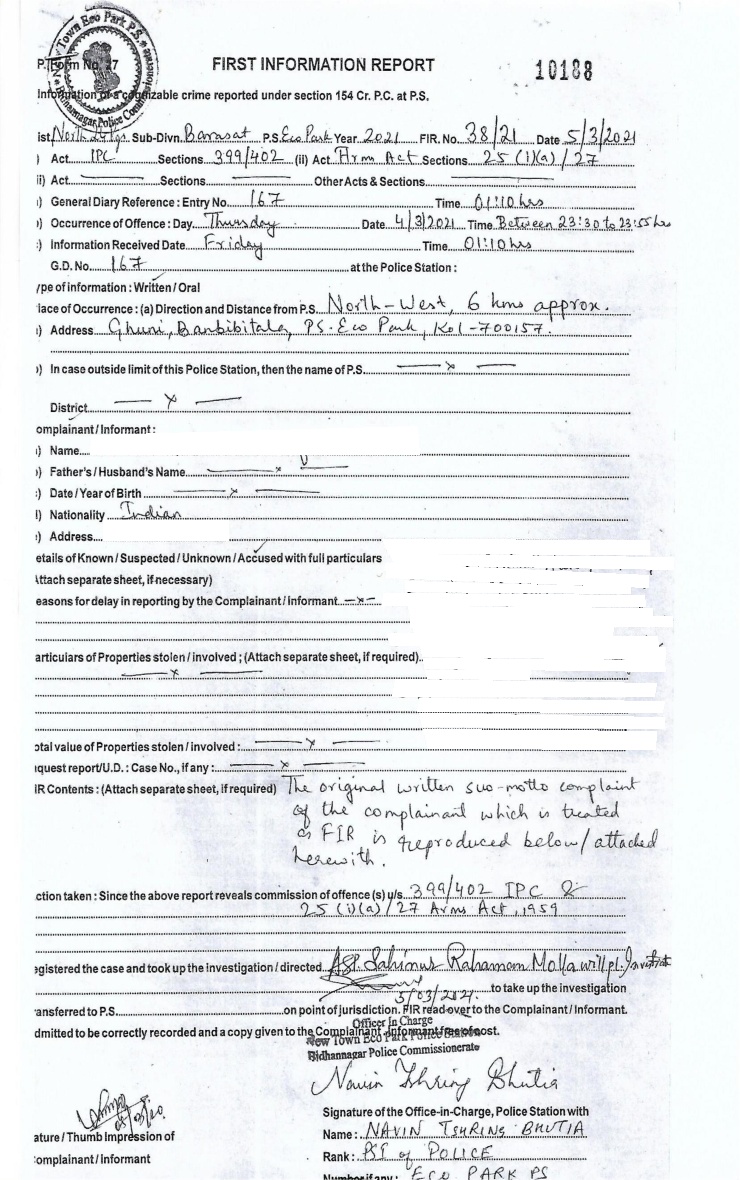 New Town Eco Park P.S.
Bidhannagar Police Commissionerate
P. Form No. 27
FIRST INFORMATION REPORT
10188
Information of a cognizable crime reported under section 154 Cr. P.C. at P.S.
ist. North 24 Pgs Sub-Divn. Barasat P.S. Eco Park Year 2021 FIR. No. 38/21 Date 5/3/2021
) Act IPC Sections 399/402 (ii) Act Arm Act Sections 25 (i)(a) / 27
ii) Act Sections Other Acts & Sections
) General Diary Reference : Entry No. 167 Time 01:10 hrs
) Occurrence of Offence : Day Thursday Date 4/3/2021 Time Between 23:30 to 23:55 hrs
:) Information Received Date Friday Time 01:10 hrs
G.D. No. 167 at the Police Station :
ype of information : Written / Oral
lace of Occurrence : (a) Direction and Distance from P.S. North-West, 6 kms approx.
) Address Ghuni, Banbibitala, PS- Eco Park, Kol-700157.
) In case outside limit of this Police Station, then the name of P.S. — x —
District — x —
omplainant / Informant :
) Name
) Father's / Husband's Name — x —
:) Date / Year of Birth — x —
l) Nationality Indian
) Address
etails of Known / Suspected / Unknown / Accused with full particulars
Attach separate sheet, if necessary)
easons for delay in reporting by the Complainant / Informant —x—
articulars of Properties stolen / involved ; (Attach separate sheet, if required)
— x —
otal value of Properties stolen / involved : — x —
quest report/U.D. : Case No., if any : — x —
IR Contents : (Attach separate sheet, if required) The original written suo-motto complaint
of the complainant which is treated
as FIR is reproduced below/attached
herewith.
ction taken : Since the above report reveals commission of offence (s) u/s. 399/402 IPC &
25 (i)(a) / 27 Arms Act, 1959
egistered the case and took up the investigation / directed Sahinur Rahaman Molla will pl.
5/03/2021. to take up the investigation
ansferred to P.S. on point of jurisdiction. FIR read over to the Complainant / Informant.
dmitted to be correctly recorded and a copy given to the Complainant / Informant free of cost.
Officer In Charge
New Town Eco Park Police Station
Bidhannagar Police Commissionerate
Navin Tshring Bhutia
Signature of the Office-in-Charge, Police Station with
ature / Thumb Impression of
Name : NAVIN TSHRING BHUTIA
omplainant / Informant
Rank : PSI of POLICE
Number if any : ECO PARK PS